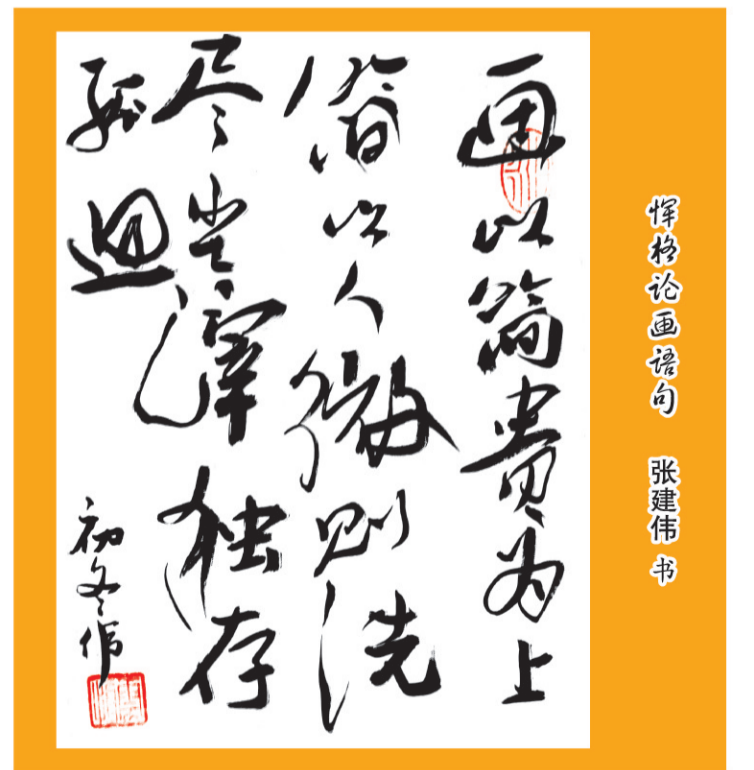 画以简贵为上
简以入微则洗
尽尘滓独存
孤迥
初冬伟
恽格论画语句 张建伟 书